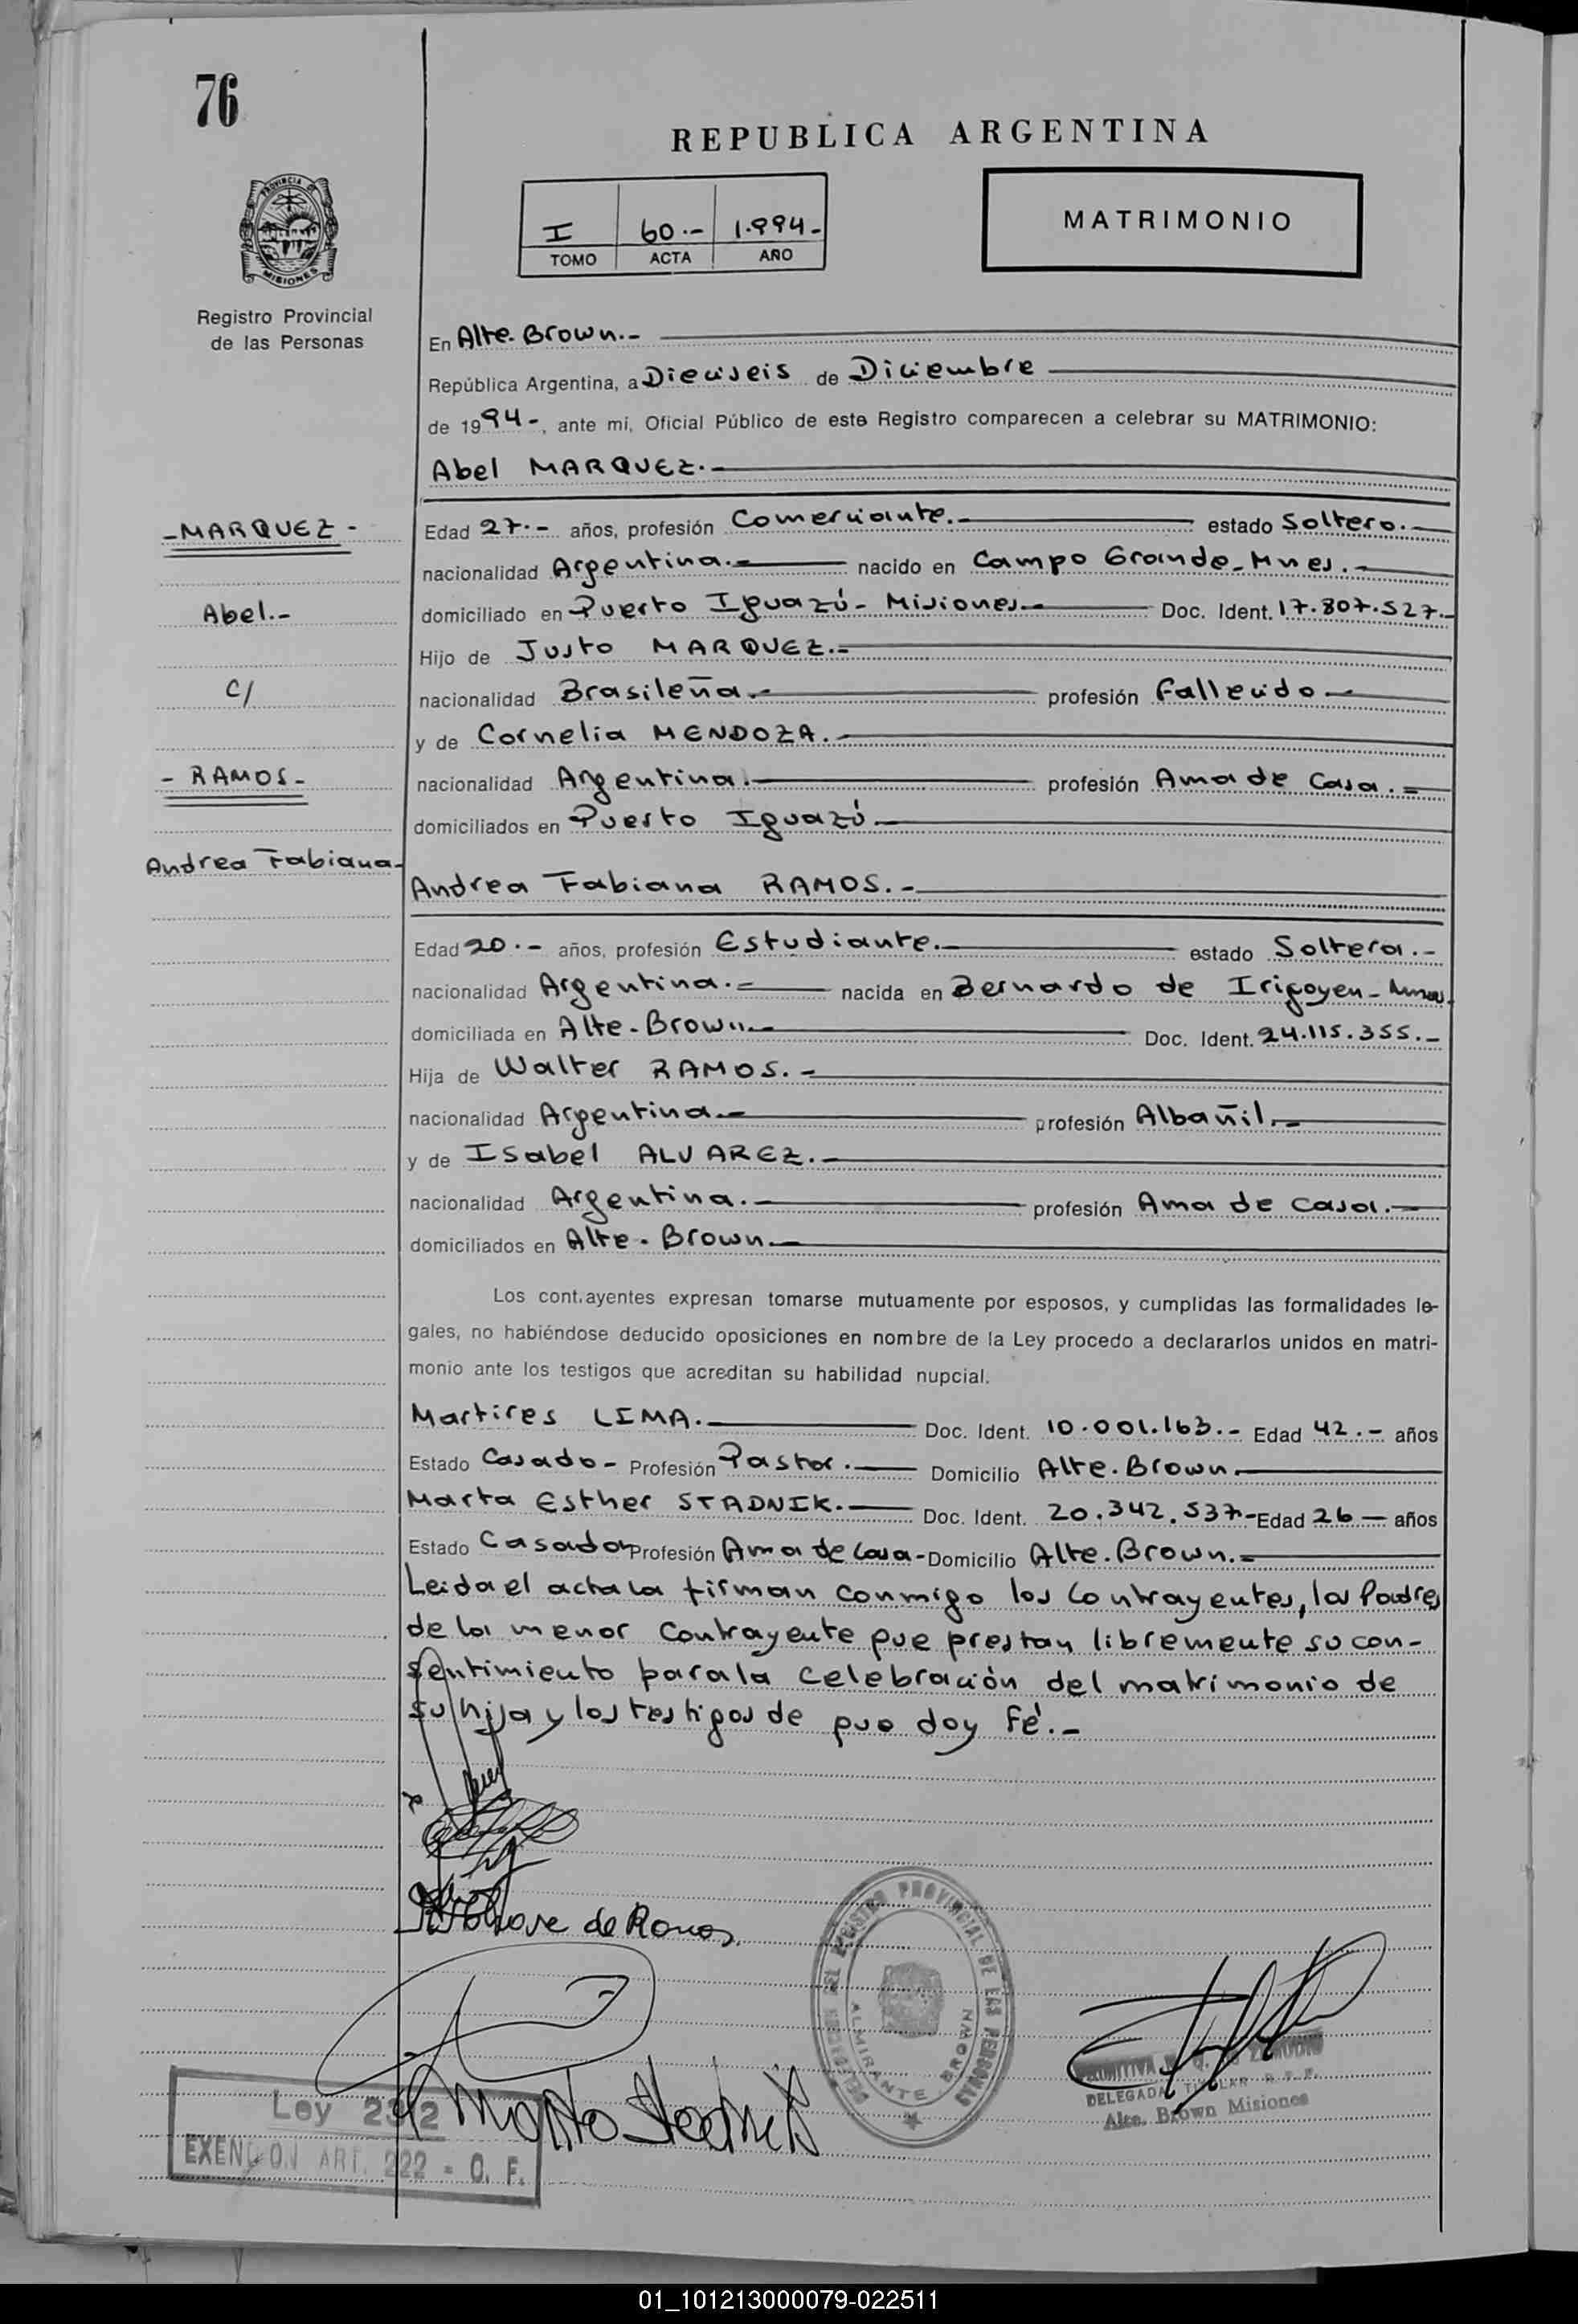 76
REPUBLICA ARGENTINA
PROVINCIA DE
MISIONES
I 60.- 1.994-
TOMO ACTA AÑO
MATRIMONIO
Registro Provincial
de las Personas
En Alte. Brown.-
República Argentina, a Dieciseis de Diciembre
de 1994-, ante mí, Oficial Público de este Registro comparecen a celebrar su MATRIMONIO:
Abel MARQUEZ.-
-MARQUEZ-
Abel.-
C/
-RAMOS-
Andrea Fabiana-
Edad 27.- años, profesión Comerciante.- estado Soltero.-
nacionalidad Argentina.- nacido en Campo Grande-Mnes.-
domiciliado en Puerto Iguazú- Misiones.- Doc. Ident. 17.807.527.-
Hijo de Justo MARQUEZ.-
nacionalidad Brasileña.- profesión Fallecido-
y de Cornelia MENDOZA.-
nacionalidad Argentina.- profesión Ama de Casa.-
domiciliados en Puerto Iguazú.-
Andrea Fabiana RAMOS.-
Edad 20.- años, profesión Estudiante.- estado Soltera.-
nacionalidad Argentina.- nacida en Bernardo de Irigoyen-Mnes.
domiciliada en Alte-Brown.- Doc. Ident. 24.115.355.-
Hija de Walter RAMOS.-
nacionalidad Argentina.- profesión Albañil.-
y de Isabel ALVAREZ.-
nacionalidad Argentina.- profesión Ama de Casa.-
domiciliados en Alte. Brown.-
Los cont.ayentes expresan tomarse mutuamente por esposos, y cumplidas las formalidades le-
gales, no habiéndose deducido oposiciones en nombre de la Ley procedo a declararlos unidos en matri-
monio ante los testigos que acreditan su habilidad nupcial.
Martires LIMA.- Doc. Ident. 10.001.163.- Edad 42.- años
Estado Casado- Profesión Pastor.- Domicilio Alte. Brown.-
Marta Esther STADNIK.- Doc. Ident. 20.342.537-Edad 26- años
Estado Casada Profesión Ama de Casa-Domicilio Alte. Brown.-
Leida el acta la firman conmigo los Contrayentes, los Padres
de la menor Contrayente que prestan libremente su con-
sentimiento para la celebración del matrimonio de
su hija y los testigos de que doy Fé.-
de Ramos
DEL REGISTRO PROVINCIAL DE LAS PERSONAS
ALMIRANTE BROWN
DELEGADA TITULAR R.P.P.
Alte. Brown Misiones
Marta Stadnik
Ley 2302
EXENCION ART. 222 - C. F.
01_101213000079-022511